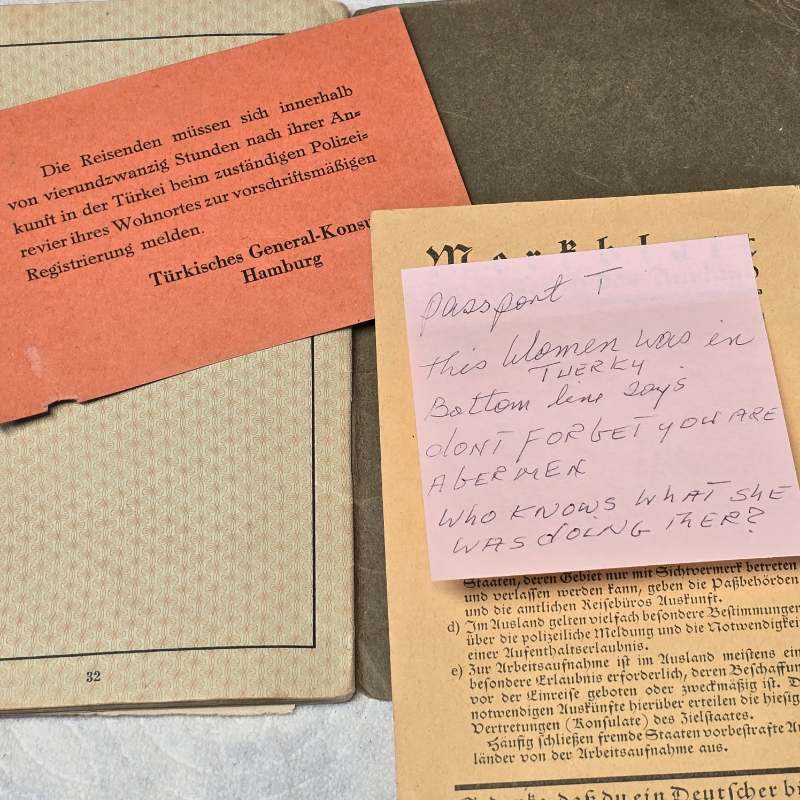 Die Reisenden müssen sich innerhalb
von vierundzwanzig Stunden nach ihrer An=
kunft in der Türkei beim zuständigen Polizei=
revier ihres Wohnortes zur vorschriftsmäßigen
Registrierung melden.
Türkisches General-Konsu
Hamburg
32
Passport T
this Women was in
TUERKY
Bottom line says
dONT FORGET YOU ARE
A GERMEN
WHO KNOWS WHAT SHE
WAS dOING THER?
Staaten, deren Gebiet nur mit Sichtvermerk betreten
und verlassen werden kann, geben die Paßbehörden
und die amtlichen Reisebüros Auskunft.
d) Im Ausland gelten vielfach besondere Bestimmungen
über die polizeiliche Meldung und die Notwendigkei
einer Aufenthaltserlaubnis.
e) Zur Arbeitsaufnahme ist im Ausland meistens ein
besondere Erlaubnis erforderlich, deren Beschaffun
vor der Einreise geboten oder zweckmäßig ist. D
notwendigen Auskünfte hierüber erteilen die hiesig
Vertretungen (Konsulate) des Zielstaates.
Häufig schließen fremde Staaten vorbestrafte A
länder von der Arbeitsaufnahme aus.
daß du ein Deutscher bi